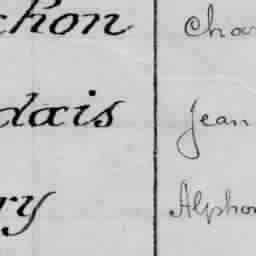 chon Char
dais Jean
ry Alphon